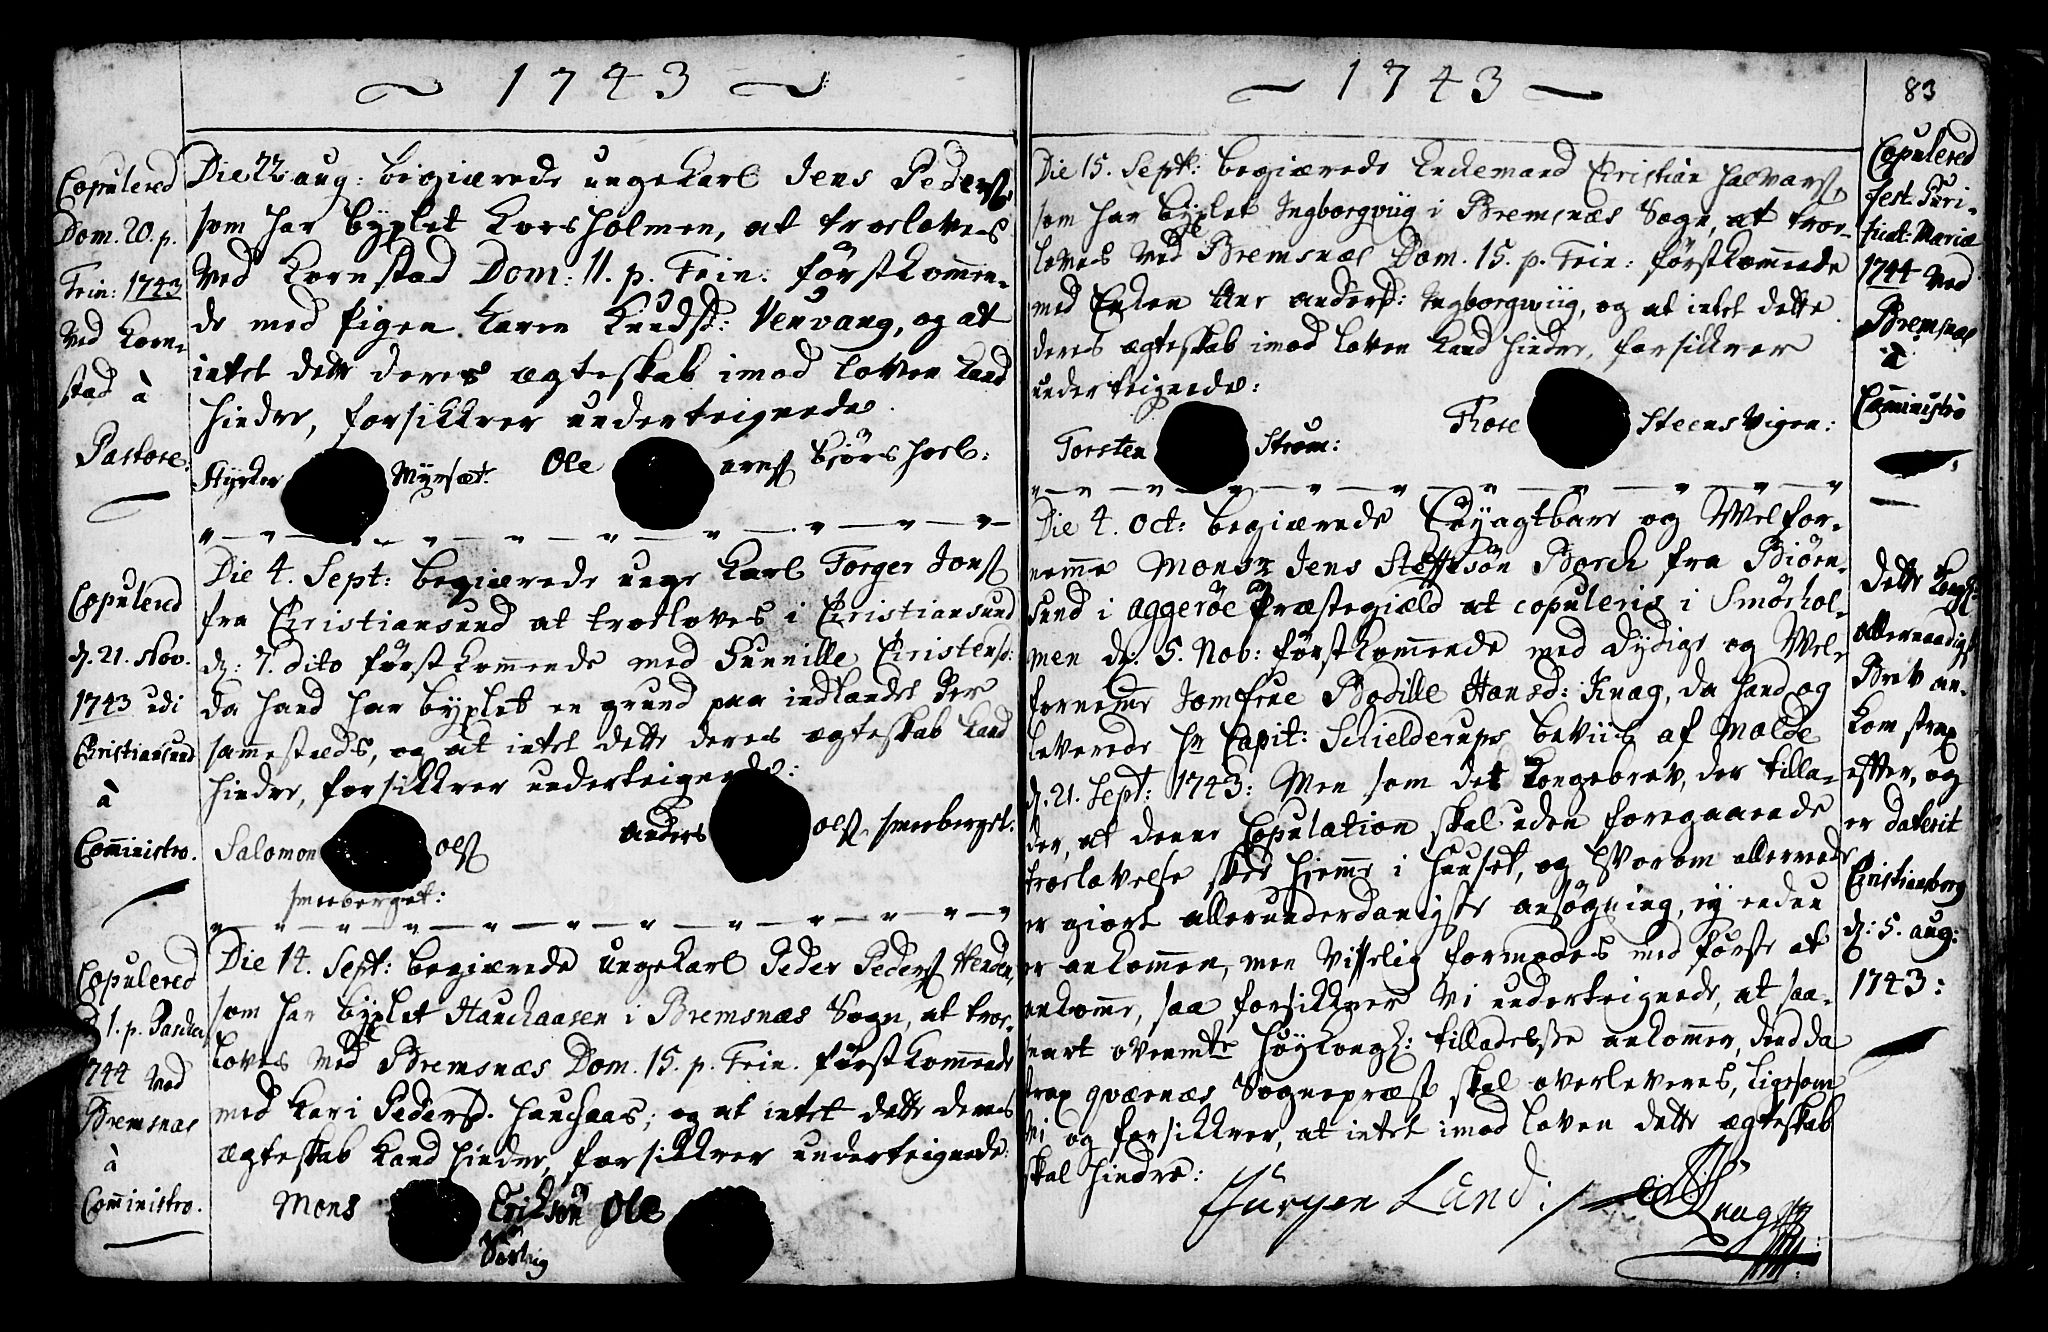 1743
Copulered
Dom. 20. p.
Trin: 1743
Ved Korn-
stad à
Pastore.
Die 22 aug: begiærede unge Karl Jens Peders:
som har byxlet Korsholmen, at troeloves
Ved Kornstad Dom: 11. p. Trin: först kom̄en-
de med Pigen Karen Knudsd: Venvang, og at
intet dette deres ægteskab imod Loven kand
hindre, forsikkrer underteignede.
Styrker Myrsæt. Ole arns: Siörsholl:
Copulered
d. 21. Nov.
1743 udi
Christiansund
à
Com̄inistro.
Die 4. Sept: begiærede unge Karl Torger Jons:
fra Christiansund at troeloves i Christiansund
d: 7. dito först kom̄ende med Gunnille Christensd:
da hand har byxlet en grund paa indlandet der
sammestæds, og at intet dette deres ægteskab kand
hindre, forsikkrer underteignede:
Salomon ols: anders ols: smeeberget:
smeeberget:
Copulered
D 1. p. Pascha
1744 Ved
Bremsnæs
à
Com̄inistro.
Die 14. Sept: begiærede Unge Karl Peder Peders: Henden,
som har byxlet Hauchaasen i Bremsnæs Sogn, at troe-
loves Ved Bremsnæs Dom. 15. p. Trin. först kom̄ende
med Kari Pedersd. Hauchaas; og at intet dette deres
ægteskab kand hindre, forsikkrer underteignede:
Mons Erikson Ole
1743
83
Die 15. Sept: begiærede Enckemand Christian Halvars:
som har byxlet Ingborgviig i Bremsnæs Sogn, at troe-
loves Ved Bremsnæs Dom. 15. p. Trin: först kom̄ende
med Enken Ane Andersd: Ingborgwiig, og at intet dette
deres ægteskab imod Loven kand hindre, forsikkrer
underteignede:
Torsten Ström: Thore Steensvigen:
Copulered
Fest. Puri-
ficat: Mariæ
1744 Ved
Bremsnæs
à
Com̄inistro
Die 4. Oct: begiærede Edlagtbare og Velfor-
nemme Monsr Jens Steffesön Borch fra Biörn-
sund i Aggeröe Præstegiæld at copuleris i Smörhol-
men d: 5. Nob: först kom̄ende med Dydige og Vel-
fornemme Jomfrue Bodille Hansd: Knag, da hand og
leverede Hr Capit: Schielderups beviis af Molde
d. 21. Sept: 1743: Men som det Kongebrev, der tilla-
der, at denne Copulation skal uden foregaaende
troelovelse skee hiemme i Huuset, og hvorom allerede
er giort allerunderdanigste ansögning, ej endnu
er ankommen, men visselig formodes med förste at
ankomme, saa forsikkrer Vi underteignede, at saa-
snart ovenmte Höykongl: tilladelsse ankommer, dend da
strax qværnæs Sognepræst skal overleveres, ligesom
Vi og forsikkrer, at intet imod Loven dette ægteskab
skal hindre:
Jürgen Lund: Knag
Dette Kongl:
allernaadigst
Brev an-
kom strax
efter, og
er daterit
Christiansborg
d: 5. aug:
1743: